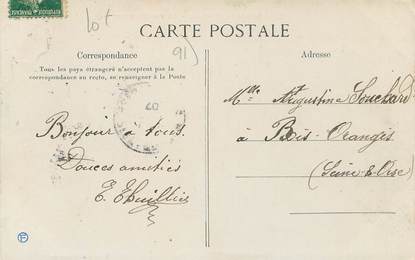 lot
CARTE POSTALE
91)
Correspondance
Tous les pays étrangers n'acceptent pas la
correspondance au recto, se renseigner à la Poste
Adresse
Bonjour a tous.
Douces amitiés
E. Thuillier
Mlle Augustine Souchard
à Bois-Orangis
(Seine & Oise)